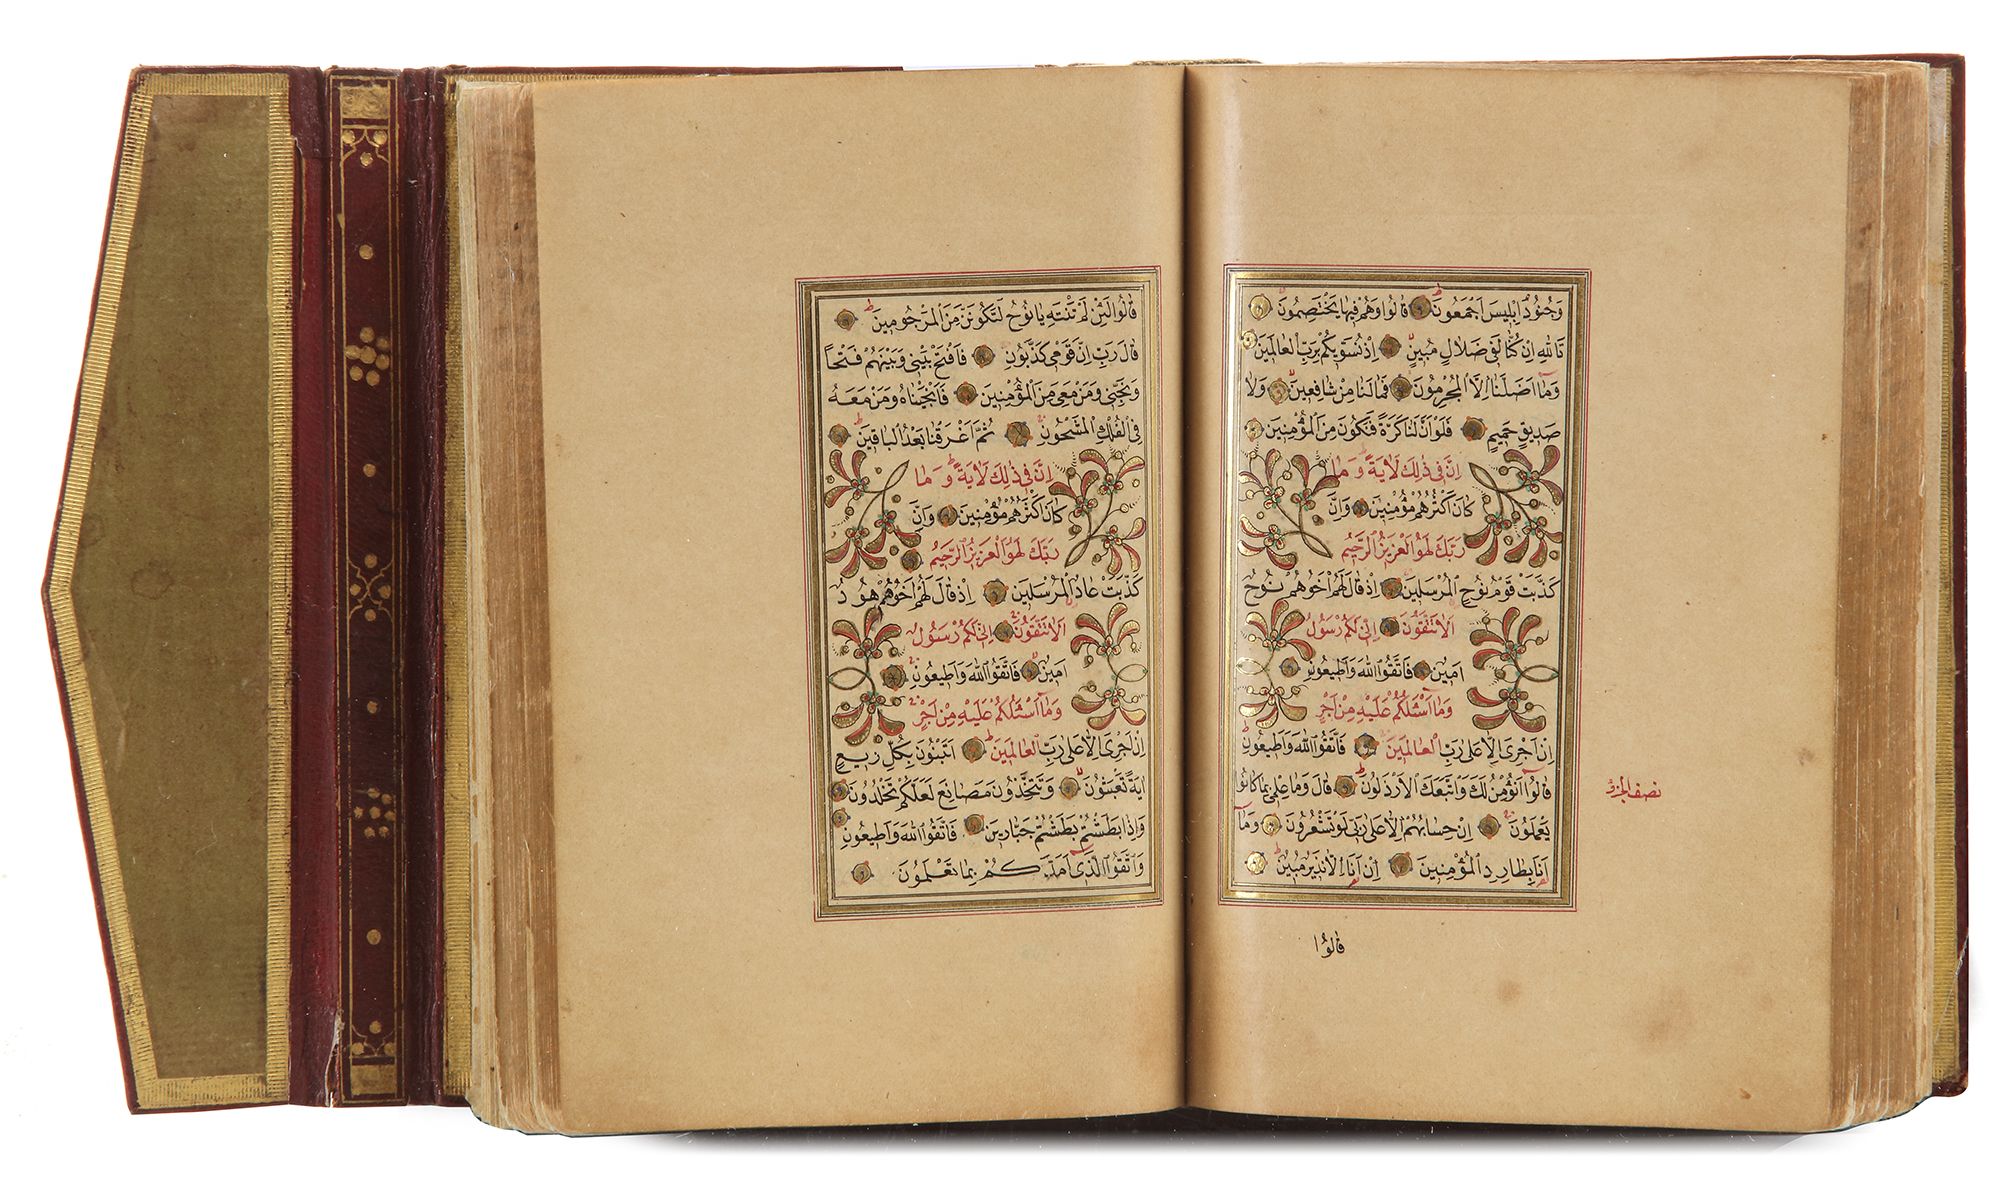 وَجُنُودُ اِبْلِيسَ اَجْمَعُونَ قَالُوا وَهُمْ فِيهَا يَخْتَصِمُونَ
تَاللّٰهِ اِنْ كُنَّا لَفِي ضَلَالٍ مُبِينٍ اِذْ نُسَوِّيكُمْ بِرَبِّ الْعَالَمِينَ
وَمَآ اَضَلَّنَا اِلَّا الْمُجْرِمُونَ فَمَا لَنَا مِنْ شَافِعِينَ وَلَا
صَدِيقٍ حَمِيمٍ فَلَوْ اَنَّ لَنَا كَرَّةً فَنَكُونَ مِنَ الْمُؤْمِنِينَ
اِنَّ فِي ذٰلِكَ لَاٰيَةً وَمَا
كَانَ اَكْثَرُهُمْ مُؤْمِنِينَ وَاِنَّ
رَبَّكَ لَهُوَ الْعَزِيزُ الرَّحِيمُ
كَذَّبَتْ قَوْمُ نُوحٍ الْمُرْسَلِينَ اِذْ قَالَ لَهُمْ اَخُوهُمْ نُوحٌ
اَلَا تَتَّقُونَ اِنِّي لَكُمْ رَسُولٌ
اَمِينٌ فَاتَّقُوا اللّٰهَ وَاَطِيعُونِ
وَمَآ اَسْئَلُكُمْ عَلَيْهِ مِنْ اَجْرٍ
اِنْ اَجْرِيَ اِلَّا عَلٰى رَبِّ الْعَالَمِينَ فَاتَّقُوا اللّٰهَ وَاَطِيعُونِ
قَالُوٓا اَنُؤْمِنُ لَكَ وَاتَّبَعَكَ الْاَرْذَلُونَ قَالَ وَمَا عِلْمِي بِمَا كَانُوا
يَعْمَلُونَ اِنْ حِسَابُهُمْ اِلَّا عَلٰى رَبِّي لَوْ تَشْعُرُونَ وَمَآ
اَنَا بِطَارِدِ الْمُؤْمِنِينَ اِنْ اَنَا اِلَّا نَذِيرٌ مُبِينٌ
قَالُوا
نصف الجزؤ
قَالُوا لَئِنْ لَمْ تَنْتَهِ يَا نُوحُ لَتَكُونَنَّ مِنَ الْمَرْجُومِينَ
قَالَ رَبِّ اِنَّ قَوْمِي كَذَّبُونِ فَافْتَحْ بَيْنِي وَبَيْنَهُمْ فَتْحًا
وَنَجِّنِي وَمَنْ مَعِيَ مِنَ الْمُؤْمِنِينَ فَاَنْجَيْنَاهُ وَمَنْ مَعَهُ
فِي الْفُلْكِ الْمَشْحُونِ ثُمَّ اَغْرَقْنَا بَعْدُ الْبَاقِينَ
اِنَّ فِي ذٰلِكَ لَاٰيَةً وَمَا
كَانَ اَكْثَرُهُمْ مُؤْمِنِينَ وَاِنَّ
رَبَّكَ لَهُوَ الْعَزِيزُ الرَّحِيمُ
كَذَّبَتْ عَادٌ الْمُرْسَلِينَ اِذْ قَالَ لَهُمْ اَخُوهُمْ هُودٌ
اَلَا تَتَّقُونَ اِنِّي لَكُمْ رَسُولٌ
اَمِينٌ فَاتَّقُوا اللّٰهَ وَاَطِيعُونِ
وَمَآ اَسْئَلُكُمْ عَلَيْهِ مِنْ اَجْرٍ
اِنْ اَجْرِيَ اِلَّا عَلٰى رَبِّ الْعَالَمِينَ اَتَبْنُونَ بِكُلِّ رِيعٍ
اٰيَةً تَعْبَثُونَ وَتَتَّخِذُونَ مَصَانِعَ لَعَلَّكُمْ تَخْلُدُونَ
وَاِذَا بَطَشْتُمْ بَطَشْتُمْ جَبَّارِينَ فَاتَّقُوا اللّٰهَ وَاَطِيعُونِ
وَاتَّقُوا الَّذِيٓ اَمَدَّكُمْ بِمَا تَعْلَمُونَ